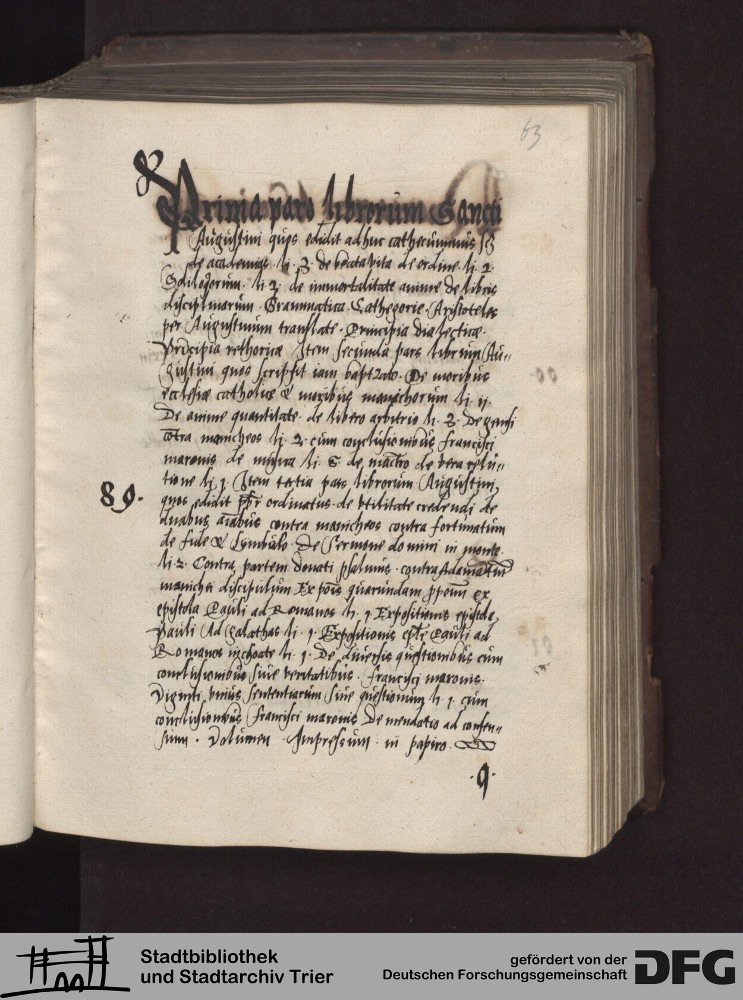 63
Prima pars librorum Sancti
Augustini quos edidit ad huc cathecuminus
de academicis li. 3. de beata vita de ordine li. 2.
Soliloquiorum li 2. de immortalitate anime de libris
disciplinarum Grammatica Cathegorie Aristotelis
per Augustinum translate. Principia dialectice.
Principia rethorice Item secunda pars librorum Au-
gustini quos scripsit iam baptizato. De moribus
ecclesie catholice & moribus manicheorum li. ij.
De anime quantitate. de libero arbitrio li. 3. De genesi
contra manicheos li. 2. cum conclusionibus francisci
maronis de musica li. 6. de magistro de vera reli-
gione li. j. Item tertia pars librorum Augustini
89.
quos edidit ordinatus. de utilitate credendi de
duabus animabus contra manicheos contra fortunatum
de fide & symbolo. De Sermone domini in monte
li. 2. Contra partem donati psalmus. contra Adamantum
manichei discipulum quarundam ex
epistola Pauli ad Romanos li. 1 Expositionis epistole
Pauli Ad Galathas li. 1. Expositionis Pauli ad
Romanos inchoate li. 1. De diversis questionibus cum
conclusionibus sive veritatibus. Francisci maronis.
Viginti unius sententiarum sive questionum li. 1. cum
conclusionibus Francisci maronis De mendatio ad consen-
sium. Volumen. Impressum. in papiro.
.9.
Stadtbibliothek
und Stadtarchiv Trier
gefördert von der
Deutschen Forschungsgemeinschaft
DFG